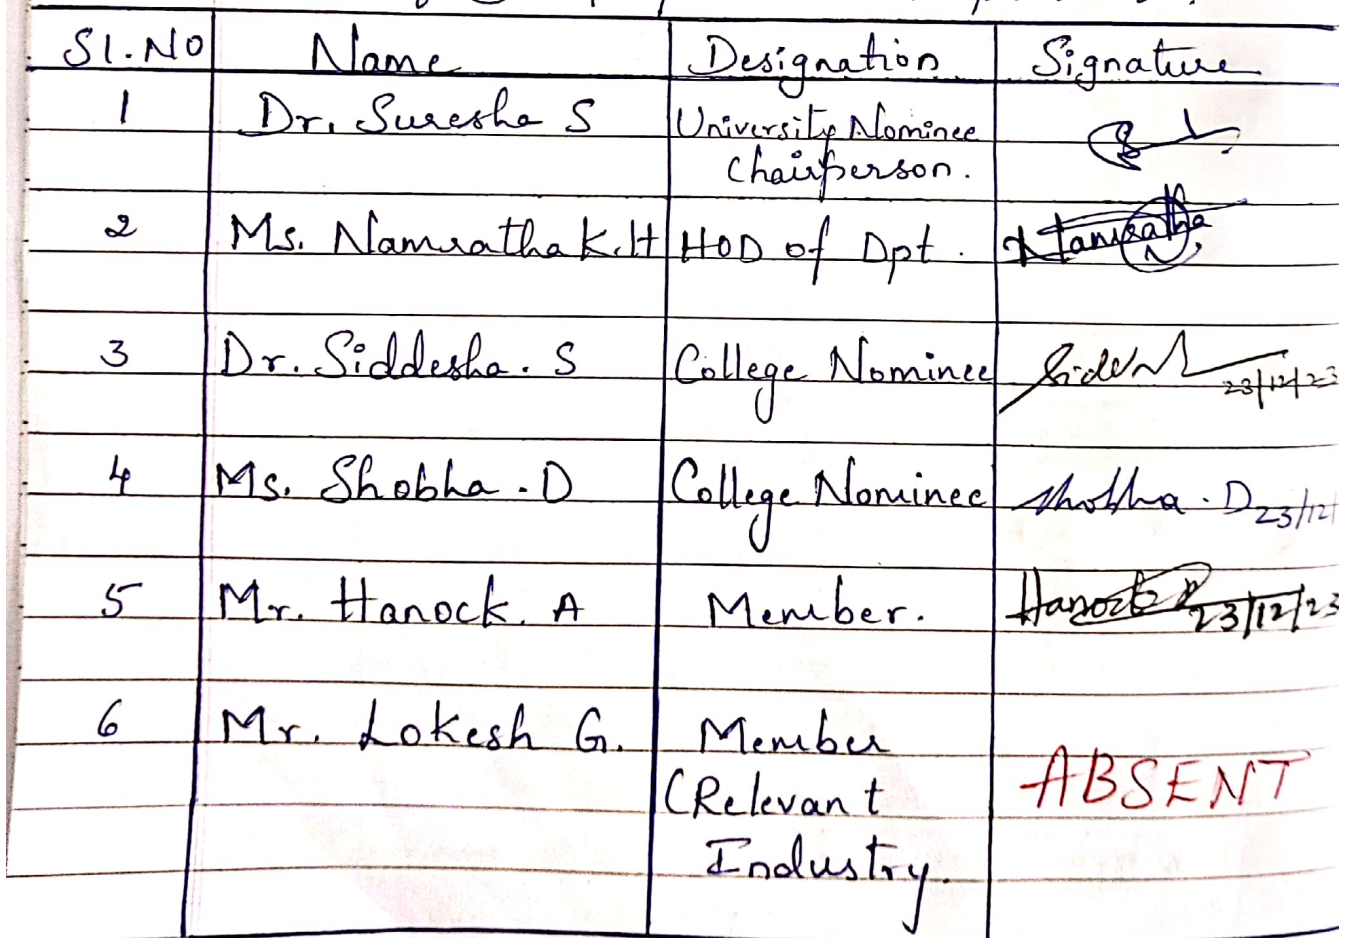 Sl.No Name Designation Signature
1 Dr. Suresha S University Nominee
Chairperson.
2 Ms. Namratha K.H HOD of Dpt. Namratha
3 Dr. Siddesha. S College Nominee 23/12/23
4 Ms. Shobha . D College Nominee Shobha . D 23/12/
5 Mr. Hanock. A Member. Hanock 23/12/23
6 Mr. Lokesh G. Member
(Relevant ABSENT
Industry.